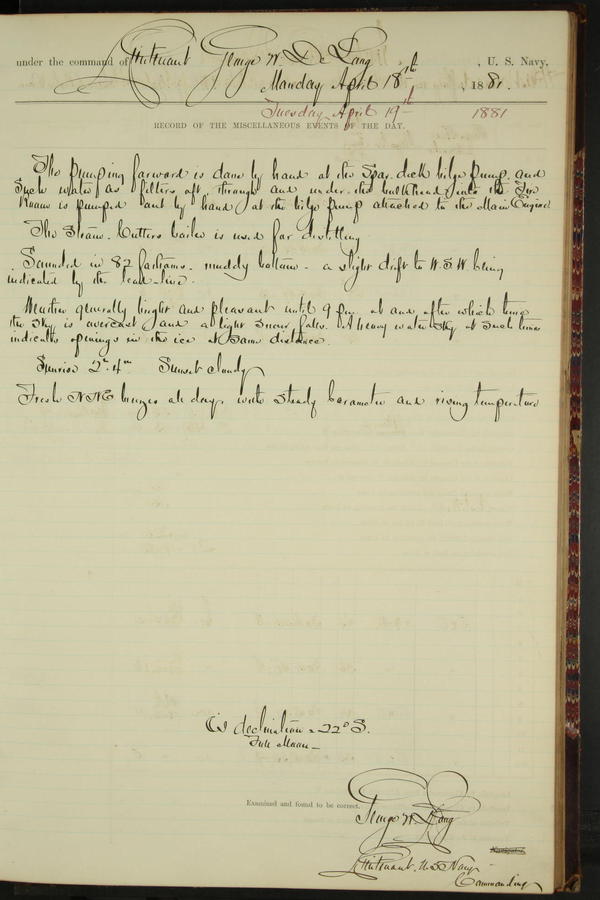 under the command of Lieutenant George W. De Long , U. S. Navy,
Monday April 18th , 1881.
Tuesday April 19th 1881
RECORD OF THE MISCELLANEOUS EVENTS OF THE DAY.
The pumping forward is done by hand at the Spar deck bilge pump. and
Such water as filters aft, through and under the bulkhead into the Fire
Room is pumped out by hand at the bilge pump attached to the Main Engine
The Steam Cutters boiler is used for distilling
Sounded in 82 fathoms. muddy bottom - a slight drift to W.S.W. being
indicated by the lead-line.
Weather generally bright and pleasant until 9 pm. at and after which time
the sky is overcast and a light snow falls. A heavy water sky at such times
indicates openings in the ice at some distance.
Sunrise 2h. 4m Sunset cloudy
Fresh NNE breezes all day with steady barometer and rising temperature
☾'s declination = 22° S.
Full Moon -
Examined and found to be correct.
George W. De Long
Navigator.
Lieutenant, U.S. Navy
Commanding